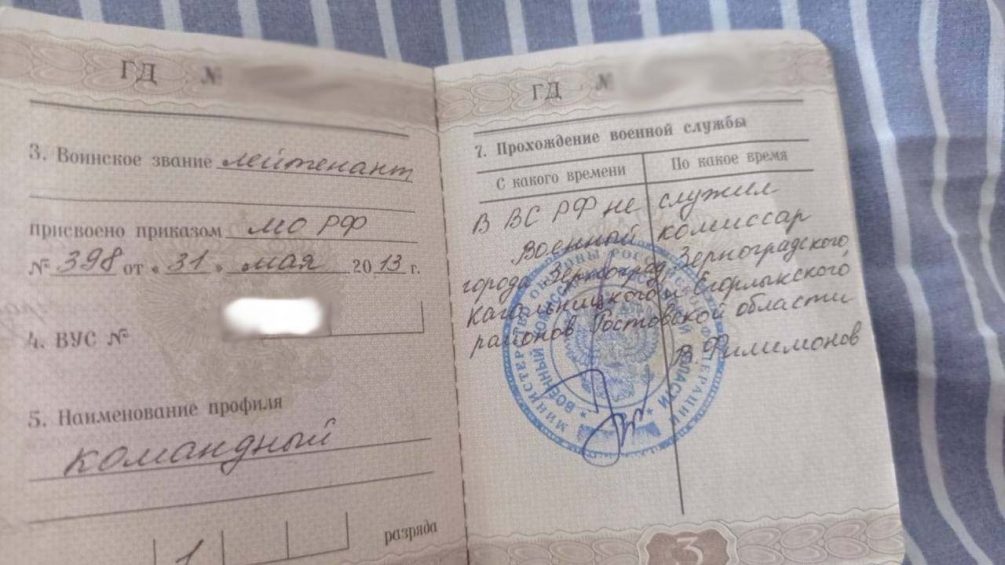 ГД №
3. Воинское звание лейтенант
присвоено приказом МО РФ
№ 398 от «31» мая 2013 г.
4. ВУС №
5. Наименование профиля
командный
1
разряда
ГД №
7. Прохождение военной службы
С какого времени По какое время
В ВС РФ не служил
Военный комиссар
города Зерноград, Зерноградского
Кагальницкого и Егорлыкского
районов Ростовской области
В. Филимонов
МИНИСТЕРСТВО ОБОРОНЫ РОССИЙСКОЙ ФЕДЕРАЦИИ
ВОЕННЫЙ ОБЛАСТИ
3